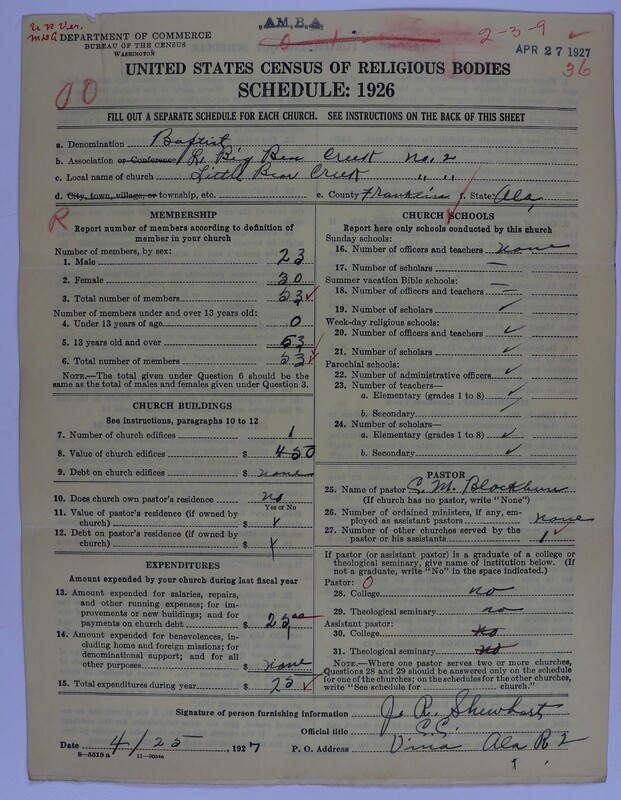 A.M.B.A.
2-3-9
DEPARTMENT OF COMMERCE
BUREAU OF THE CENSUS
WASHINGTON
APR 27 1927
36
UNITED STATES CENSUS OF RELIGIOUS BODIES
SCHEDULE: 1926
00
FILL OUT A SEPARATE SCHEDULE FOR EACH CHURCH. SEE INSTRUCTIONS ON THE BACK OF THIS SHEET
a. Denomination Baptist
b. Association or Conference Big Bear Creek No. 2
c. Local name of church Little Bear Creek " "
d. City, town, village, or township, etc. e. County Franklin f. State Ala,
R
MEMBERSHIP
Report number of members according to definition of
member in your church
Number of members, by sex:
1. Male 23
2. Female 30
3. Total number of members 53
Number of members under and over 13 years old:
4. Under 13 years of age 0
5. 13 years old and over 53
6. Total number of members 53
NOTE.—The total given under Question 6 should be the
same as the total of males and females given under Question 3.
CHURCH BUILDINGS
See instructions, paragraphs 10 to 12
7. Number of church edifices 1
8. Value of church edifices $ 450
9. Debt on church edifices $ none
10. Does church own pastor's residence no
Yes or No
11. Value of pastor's residence (if owned by
church) $
12. Debt on pastor's residence (if owned by
church) $
EXPENDITURES
Amount expended by your church during last fiscal year
13. Amount expended for salaries, repairs,
and other running expenses; for im-
provements or new buildings; and for
payments on church debt $ 25.00
14. Amount expended for benevolences, in-
cluding home and foreign missions; for
denominational support; and for all
other purposes $ none
15. Total expenditures during year $ 25
CHURCH SCHOOLS
Report here only schools conducted by this church
Sunday schools:
16. Number of officers and teachers none
17. Number of scholars —
Summer vacation Bible schools:
18. Number of officers and teachers —
19. Number of scholars ✓
Week-day religious schools:
20. Number of officers and teachers ✓
21. Number of scholars ✓
Parochial schools:
22. Number of administrative officers ✓
23. Number of teachers—
a. Elementary (grades 1 to 8) ✓
b. Secondary ✓
24. Number of scholars—
a. Elementary (grades 1 to 8) ✓
b. Secondary ✓
PASTOR
25. Name of pastor C. M. Blockburn
(If church has no pastor, write "None")
26. Number of ordained ministers, if any, em-
ployed as assistant pastors none
27. Number of other churches served by the
pastor or his assistants 1 ✓
If pastor (or assistant pastor) is a graduate of a college or
theological seminary, give name of institution below. (If
not a graduate, write "No" in the space indicated.)
Pastor: 0
28. College no
29. Theological seminary no
Assistant pastor:
30. College no
31. Theological seminary no
NOTE.—Where one pastor serves two or more churches,
Questions 28 and 29 should be answered only on the schedule
for one of the churches; on the schedules for the other churches,
write "See schedule for church."
Signature of person furnishing information J. R. Shewhart
Official title C.C.
Date 4/25, 1927 P. O. Address Vina Ala R 2
8—5518 a 11—9054a